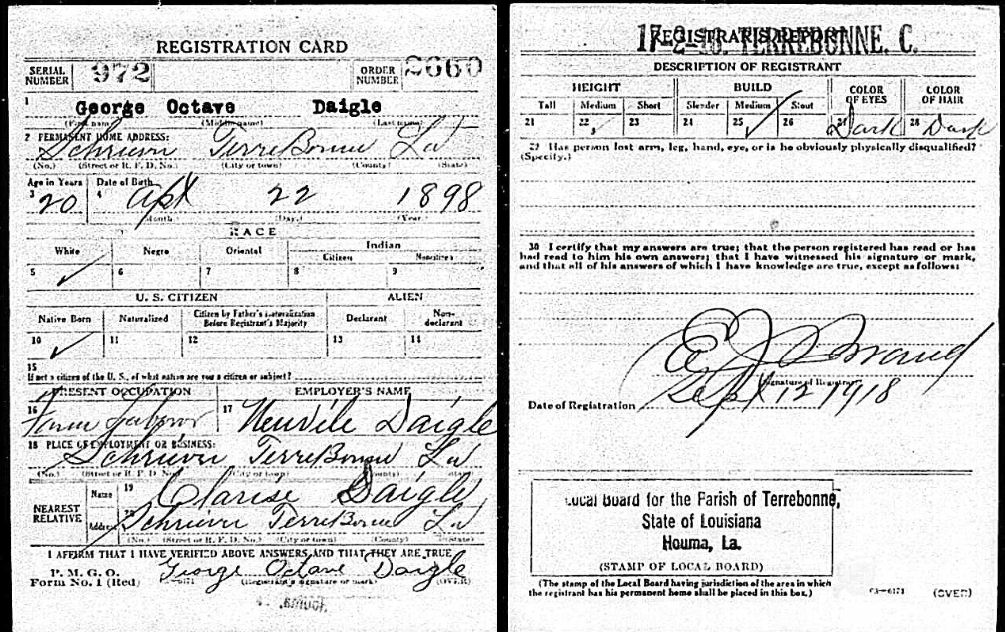 REGISTRATION CARD
SERIAL NUMBER 972 ORDER NUMBER 2660
1 George Octave Daigle
(First name) (Middle name) (Last name)
2 PERMANENT HOME ADDRESS:
Schriever TerreBonne La
(No.) (Street or R. F. D. No.) (City or town) (County) (State)
Age in Years Date of Birth
3 20 4 Apl 22 1898
Month. (Day.) (Year.
RACE
White Negro Oriental Indian
Citizen Noncitizen
5 ✓ 6 7 8 9
U. S. CITIZEN ALIEN
Native Born Naturalized Citizen by Father's Naturalization Before Registrant's Majority Declarant Non-declarant
10 ✓ 11 12 13 14
15
If not a citizen of the U. S., of what nation are you a citizen or subject?
PRESENT OCCUPATION EMPLOYER'S NAME
16 Farm Laborer 17 Neuvile Daigle
18 PLACE OF EMPLOYMENT OR BUSINESS:
Schriever TerreBonne La
(No.) (Street or R. F. D. No.) (City or town) (County) (State)
NEAREST RELATIVE
Name 19 Clarise Daigle
Address 20 Schriever TerreBonne La
(No.) (Street or R. F. D. No.) (City or town) (County) (State)
I AFFIRM THAT I HAVE VERIFIED ABOVE ANSWERS AND THAT THEY ARE TRUE
P. M. G. O.
Form No. 1 (Red) George Octave Daigle
(Registrant's signature or mark) (OVER)
REGISTRAR'S REPORT
TERREBONNE. C.
DESCRIPTION OF REGISTRANT
HEIGHT BUILD COLOR OF EYES COLOR OF HAIR
Tall Medium Short Slender Medium Stout
21 22 ✓ 23 24 25 ✓ 26 27 Dark 28 Dark
29 Has person lost arm, leg, hand, eye, or is he obviously physically disqualified?
(Specify.)
30 I certify that my answers are true; that the person registered has read or has
had read to him his own answers; that I have witnessed his signature or mark,
and that all of his answers of which I have knowledge are true, except as follows:
(Signature of Registrar)
Date of Registration Sept 12 1918
Local Board for the Parish of Terrebonne,
State of Louisiana
Houma, La.
(STAMP OF LOCAL BOARD)
(The stamp of the Local Board having jurisdiction of the area in which
the registrant has his permanent home shall be placed in this box.)
(OVER)